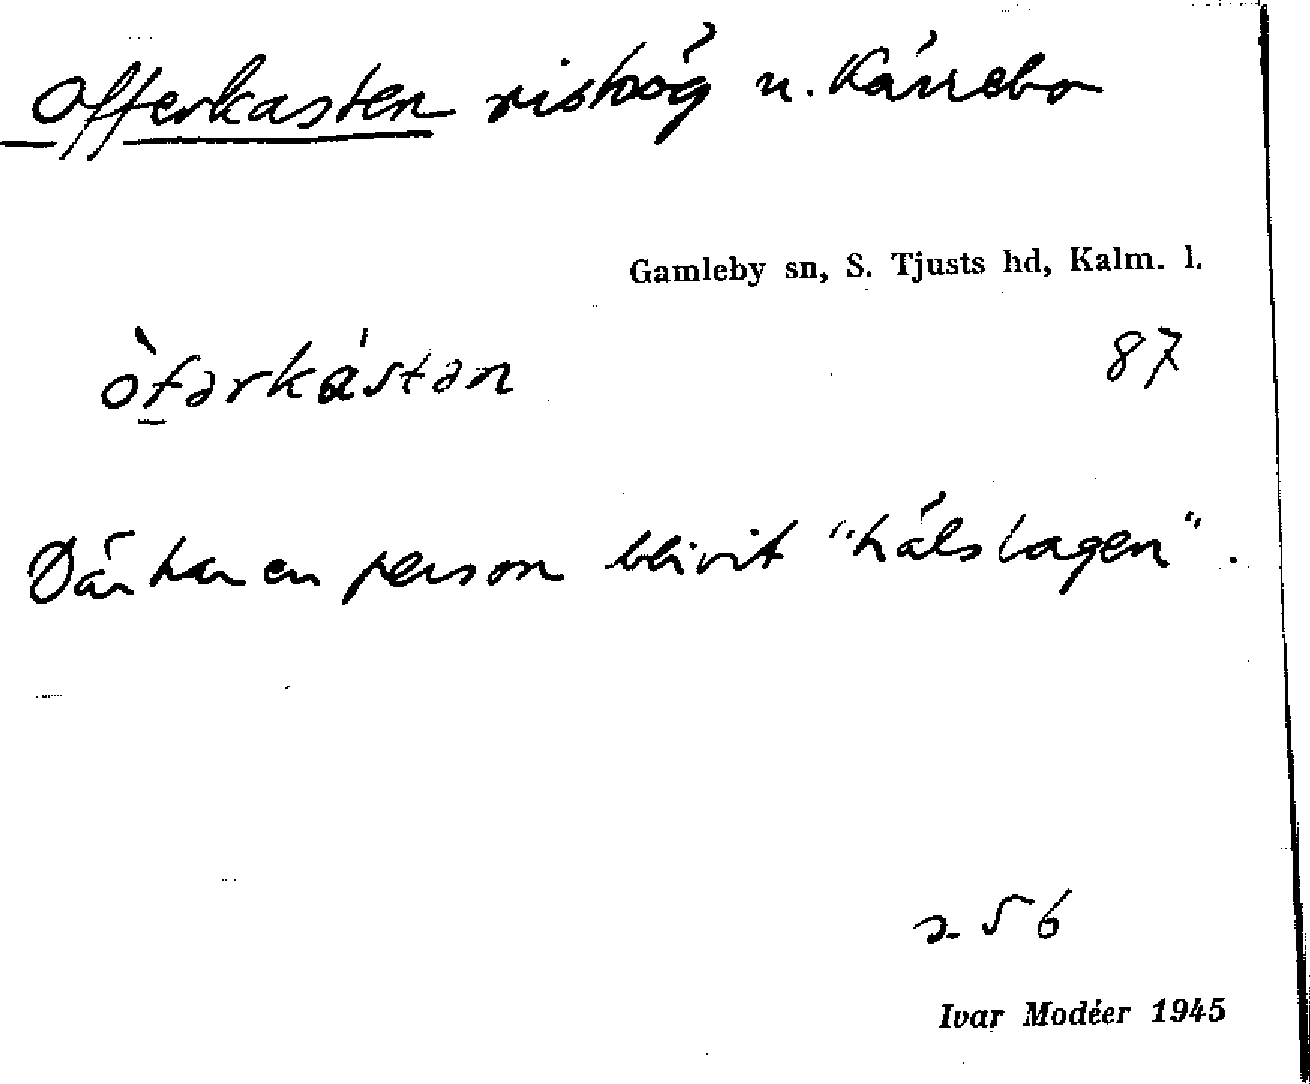 Offerkasten rishög u. Kärrebo
Gamleby sn, S. Tjusts hd, Kalm. l.
òfərkástən
87
Där har en person blivit "hälslagen".
256
Ivar Modéer 1945